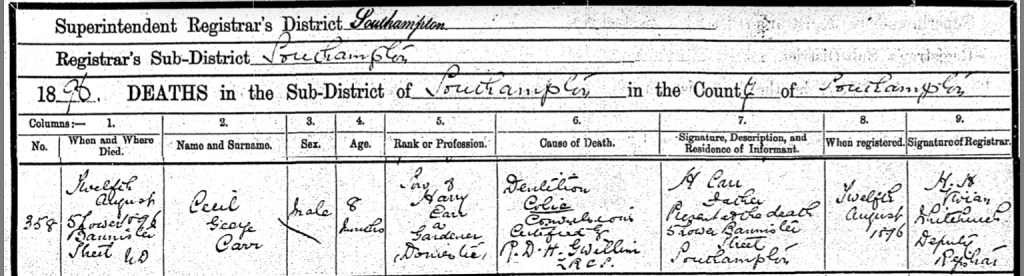 Superintendent Registrar's District Southampton
Registrar's Sub-District Southampton
1896. DEATHS in the Sub-District of Southampton in the County of Southampton
Columns:— 1. 2. 3. 4. 5. 6. 7. 8. 9.
No. When and Where Died. Name and Surname. Sex. Age. Rank or Profession. Cause of Death. Signature, Description, and Residence of Informant. When registered. Signature of Registrar.
358
Twelfth
August
1896
5 Lower
Bannister
Street UD
Cecil
George
Carr
Male
8
Months
Son of
Harry
Carr
a
Gardener
(Domestic)
Dentition
Colic
Convulsions
Certified by
R. D. H. Gwillim
L.R.C.P.
H Carr
Father
Present at the death
5 Lower Bannister
Street
Southampton
Twelfth
August
1896
H. H
Vivian
Deputy
Registrar